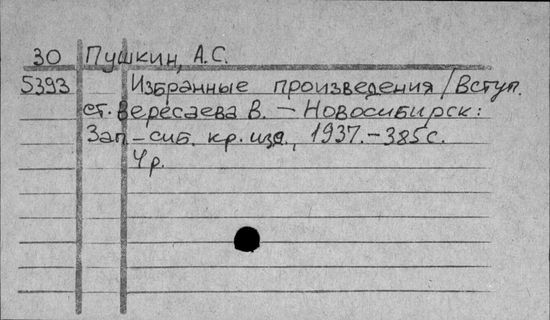 30 Пушкин, А.С.
5393 Избранные произведения / Вступ.
ст. Вересаева В. – Новосибирск:
Зап.-сиб. кр. изд., 1937. – 385 с.
4 р.